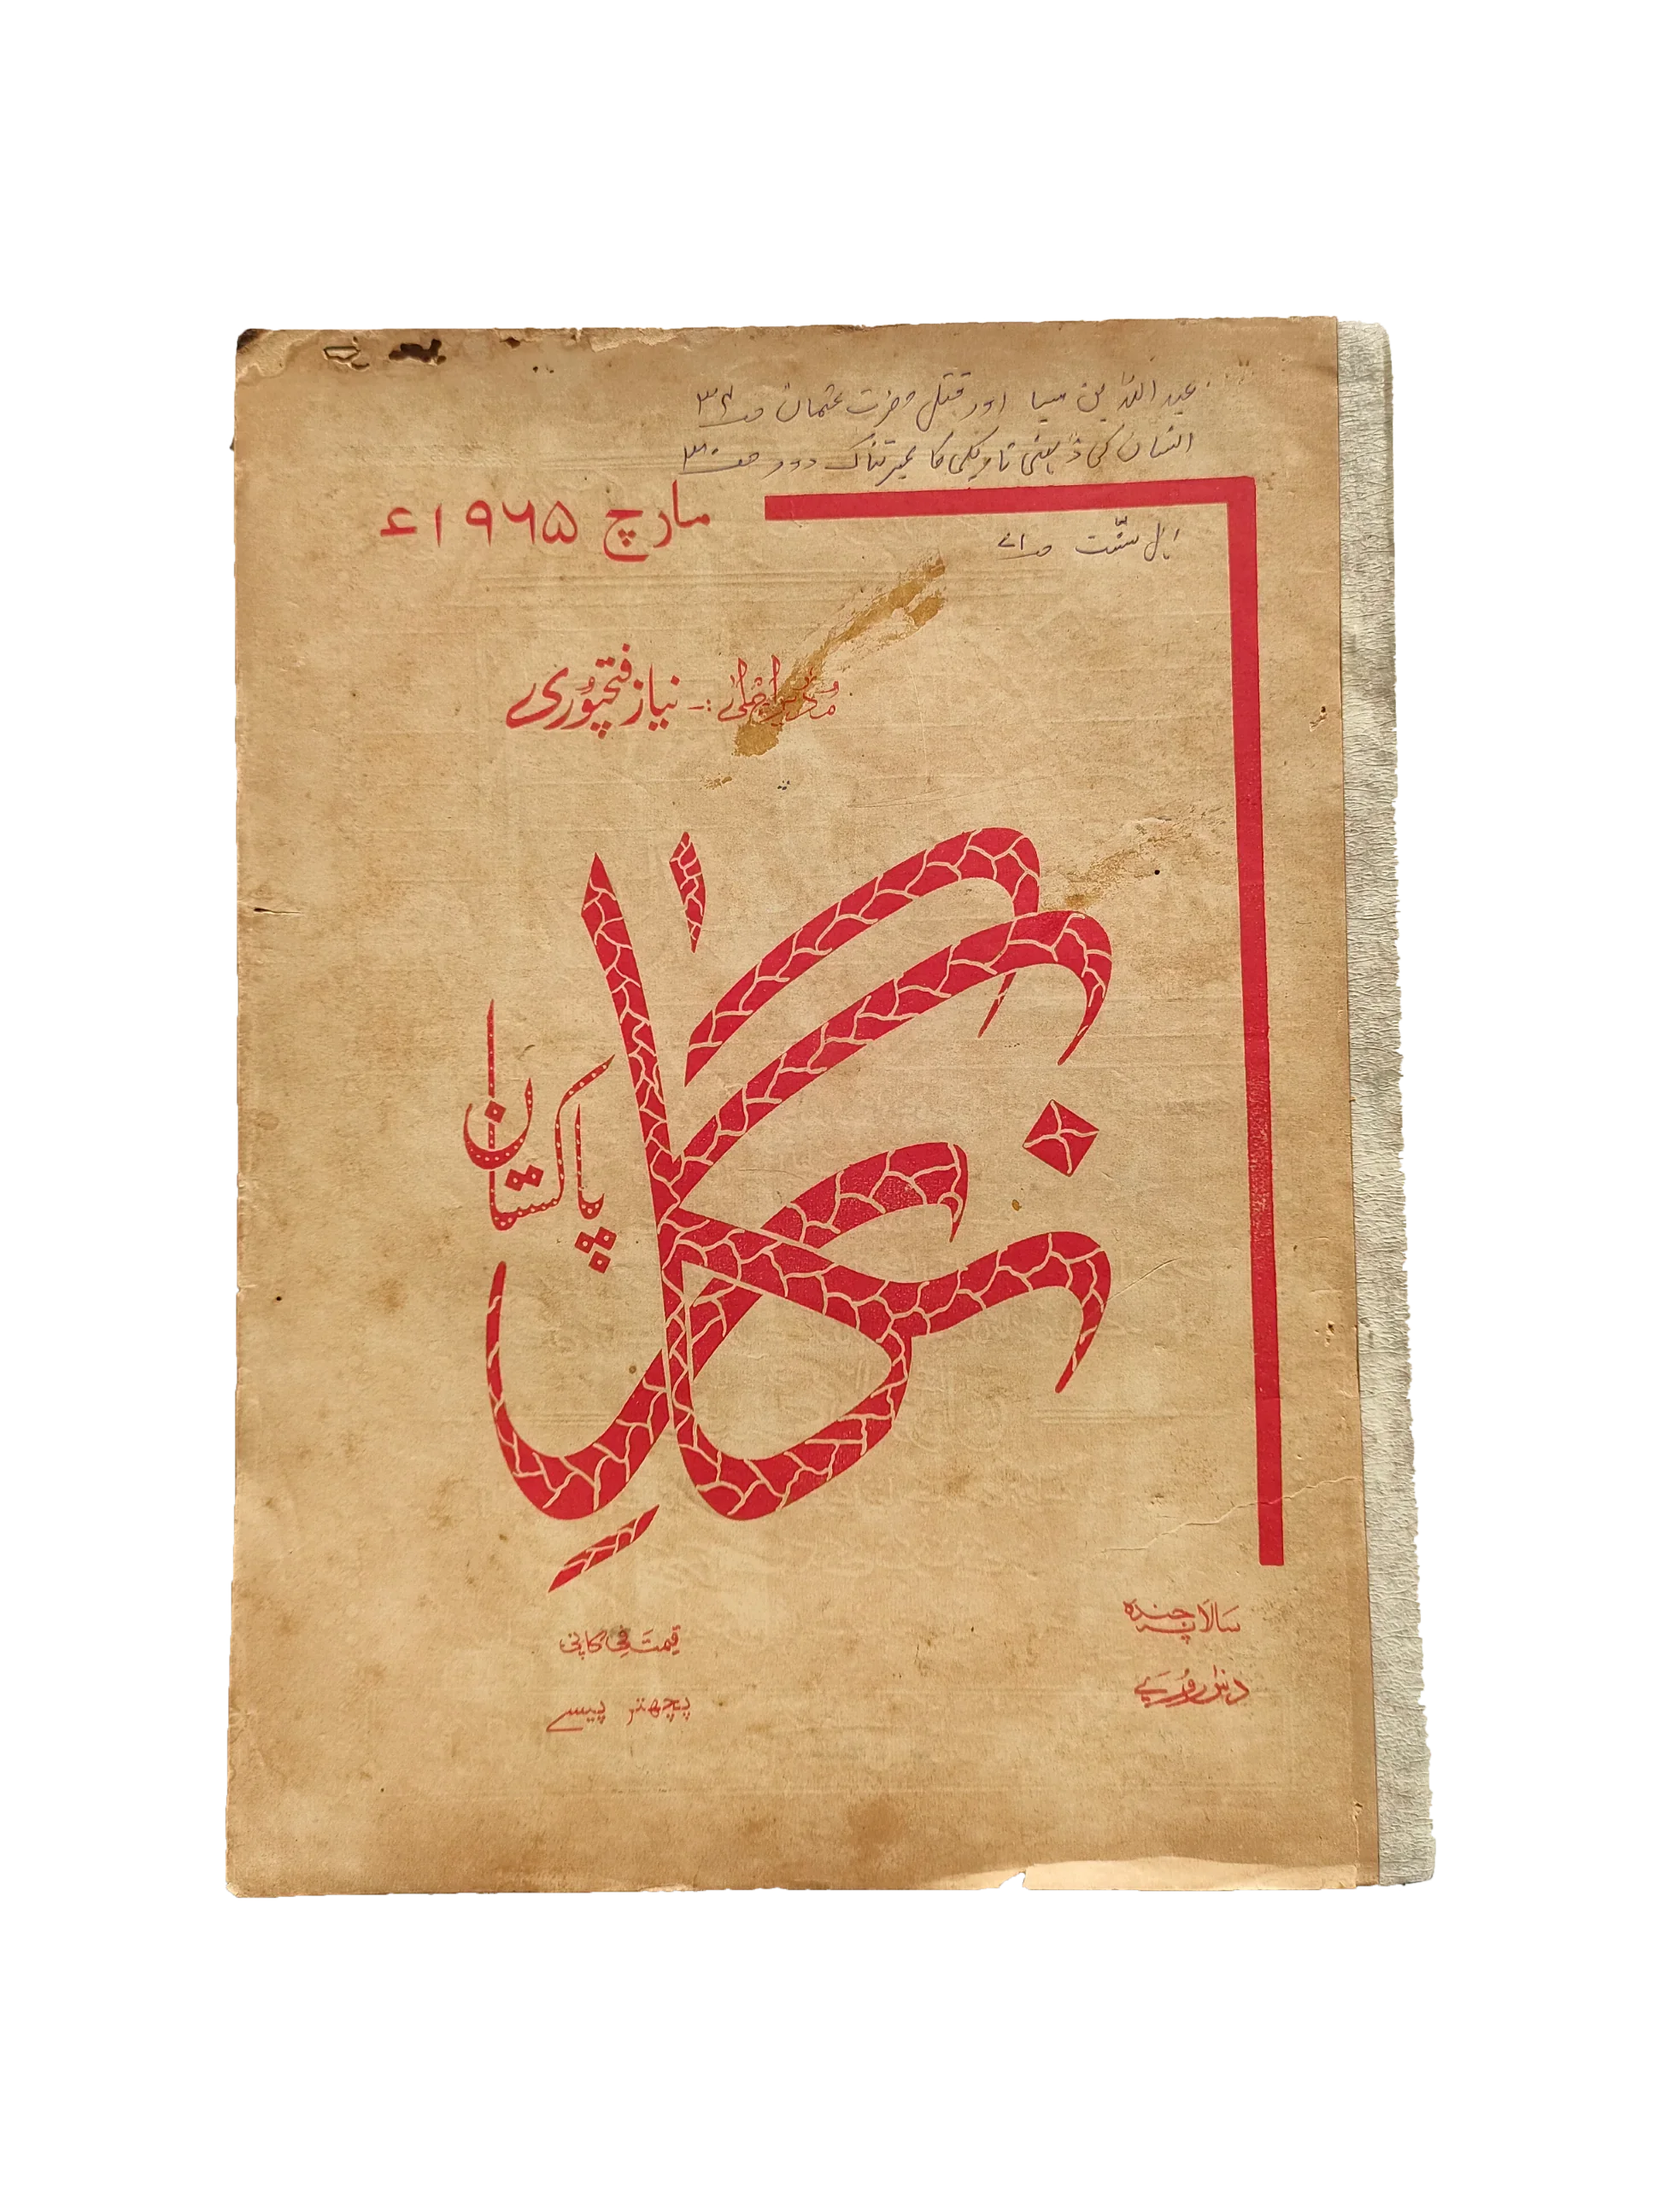 عبداللہ بن سبا اور قتل حضرت عثمان صـ ۳۴
انسان کی ذہنی تاریکی کا عبرتناک دور صـ ۳۰
مارچ ۱۹۶۵ء
اہل سنت صـ
مدیر اعلیٰ :- نیاز فتحپوری
نگار
پاکستان
سالانہ چندہ
دس روپے
قیمت فی کاپی
پچھتر پیسے